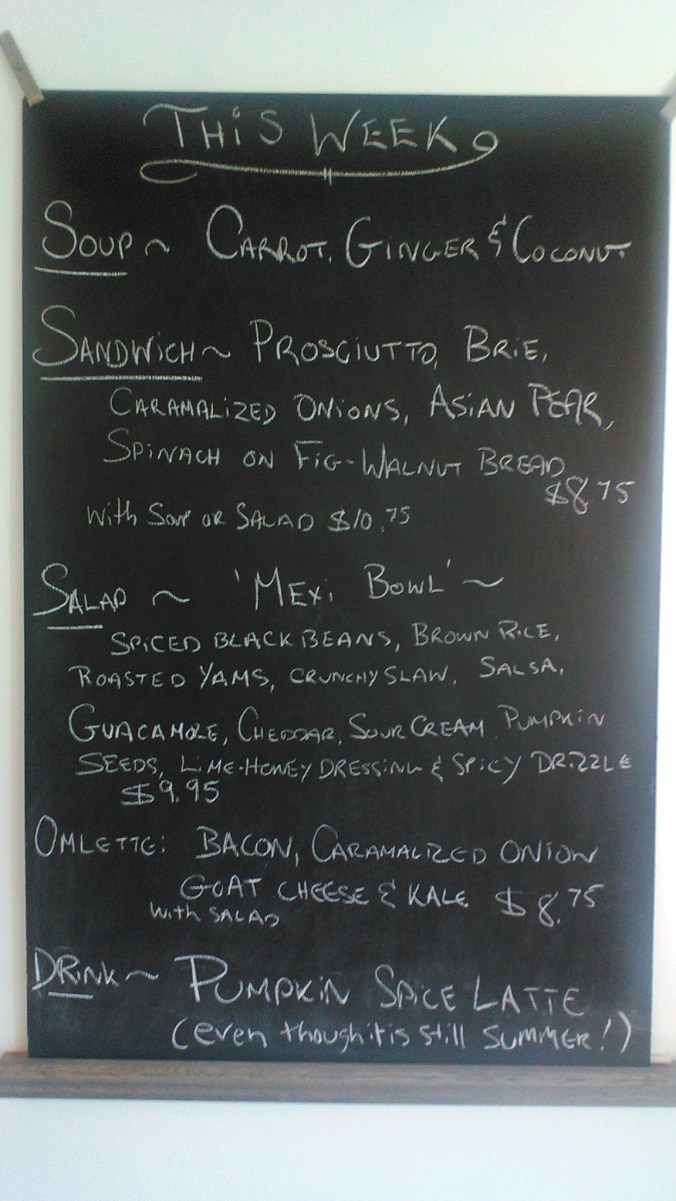 THiS WEEK
SOUP ~ CARROT, GINGER & COCONUT
SANDWiCH ~ PROSCIUTTO, BRiE,
CARAMALiZED ONIONS, ASiAN PEAR,
SPiNACH ON FiG-WALNUT BREAD
$8.75
With Soup or SALAD $10.75
SALAD ~ 'MEXi BOWL' ~
SPiCED BLACK BEANS, BROWN RiCE,
ROASTED YAMS, CRUNCHY SLAW, SALSA,
GUACAMOLE, CHEDDAR, SOUR CREAM, PUMPKiN
SEEDS, LiME-HONEY DRESSiNG & SPiCY DRiZZLE
$9.95
OMLETTE: BACON, CARAMALiZED ONiON
GOAT CHEESE & KALE $8.75
With SALAD
DRiNK ~ PUMPKiN SPiCE LATTE
(even though it is still SUMMER!)